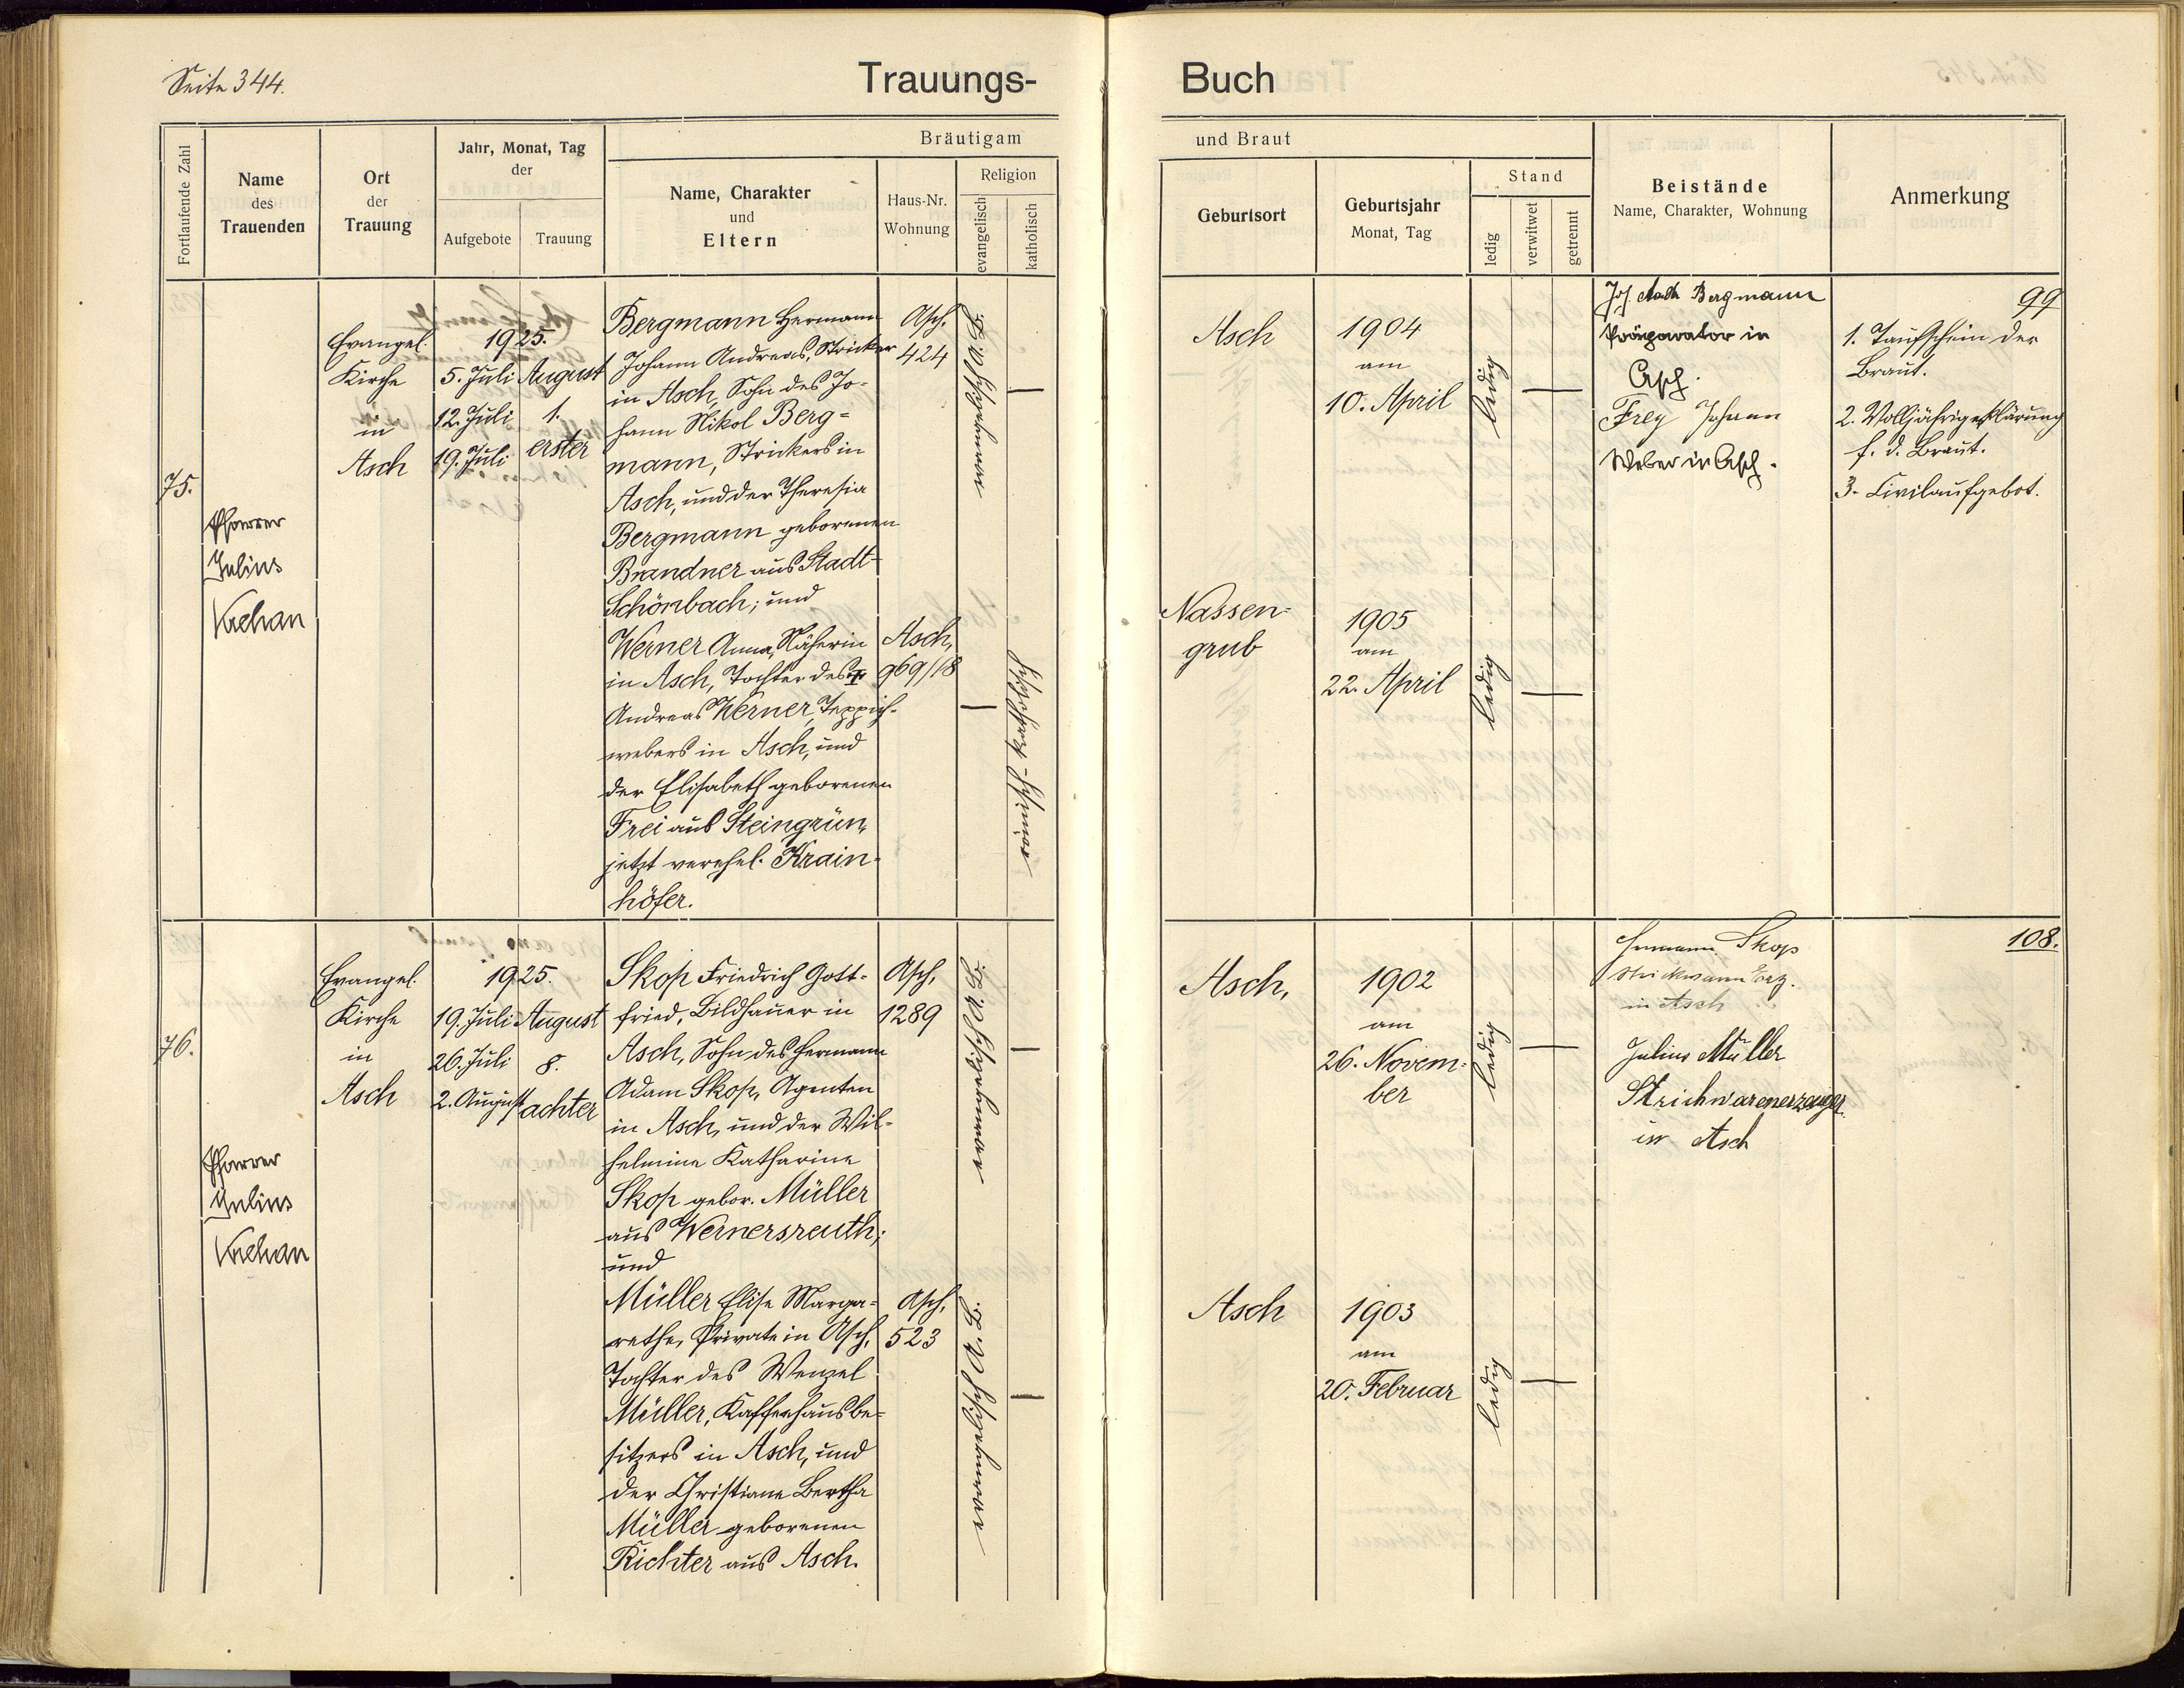 Seite 344.
Trauungs-
Buch
Fortlaufende Zahl
Name
des
Trauenden
Ort
der
Trauung
Jahr, Monat, Tag
der
Aufgebote
Trauung
Bräutigam
Name, Charakter
und
Eltern
Haus-Nr.
Wohnung
Religion
evangelisch
katholisch
und Braut
Geburtsort
Geburtsjahr
Monat, Tag
Stand
ledig
verwitwet
getrennt
Beistände
Name, Charakter, Wohnung
Anmerkung
75.
Pfarrer
Julius
Evangel.
Kirche
in
Asch
1925.
5. Juli
12. Juli
19. Juli
August
1.
erster
Bergmann Hermann
Johann Andreas, Stricker
in Asch, Sohn des Jo-
hann Nikol Berg-
mann, Strickers in
Asch, und der Theresia
Bergmann geborenen
Brandner aus Stadt
Schönbach; und
Asch,
424
evangelisch A. B.
—
Werner Anna, Näherin
in Asch, Tochter des †
Andreas Werner, Teppich-
webers in Asch, und
der Elisabeth geborenen
Frei aus Steingrün,
jetzt verehel. Krain-
höfer.
Asch,
969/18
—
römisch-katholisch
Asch
1904
am
10. April
ledig
—
Nassen-
grub
1905
am
22. April
ledig
—
Joh. Bergmann
Präparator in
Asch.
Frey Johann
Weber in Asch.
99
1. Taufschein der
Braut.
2. Volljährigerklärung
f. d. Braut.
3. Civilaufgebot.
76.
Pfarrer
Julius
Evangel.
Kirche
in
Asch
1925.
19. Juli
26. Juli
2. August
August
8.
achter
Skop Friedrich Gott-
fried, Bildhauer in
Asch, Sohn des Hermann
Adam Skop, Agenten
in Asch, und der Wil-
helmine Katharine
Skop gebor. Müller
aus Wernersreuth;
und
Asch,
1289
evangelisch A. B.
—
Müller Elise Marga-
rethe, Private in Asch,
Tochter des Wenzel
Müller, Kaffeehausbe-
sitzers in Asch, und
der Christiane Bertha
Müller geborenen
Richter aus Asch.
Asch,
523
evangelisch A. B.
—
Asch,
1902
am
26. Novem-
ber
ledig
—
Asch
1903
am
20. Februar
ledig
—
Hermann Skop
in Asch
Julius Müller
Strickwarenerzeuger
in Asch
108.